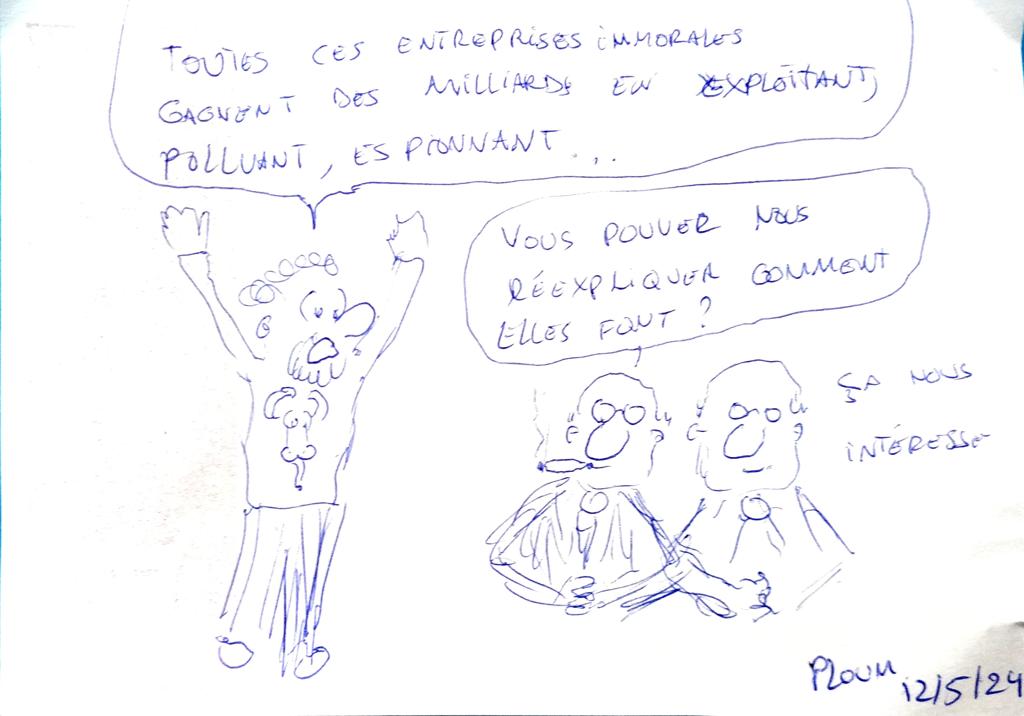 TOUTES CES ENTREPRISES IMMORALES
GAGNENT DES MILLIARDS EN EXPLOITANT,
POLLUANT, ESPIONNANT...
VOUS POUVER NOUS
RÉEXPLIQUER COMMENT
ELLES FONT ?
ÇA NOUS
INTÉRESSE
PLOUM 12/5/24